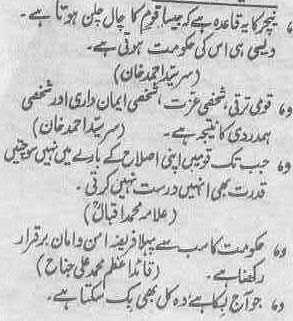 ، نیچر کا یہ قاعدہ ہے کہ جیسا قوم کا چال چلن ہوتا ہے۔
ویسی ہی اس کی حکومت ہوتی ہے۔
(سر سید احمد خان)
قومی ترقی، شخصی عزت، شخصی ایمان داری اور شخصی
ہمدردی کا نتیجہ ہے۔ (سر سید احمد خان)
جب تک قومیں اپنی اصلاح کے بارے میں نہیں سوچتیں
قدرت بھی انہیں درست نہیں کرتی۔
(علامہ محمد اقبالؒ)
حکومت کا سب سے پہلا فریضہ امن و امان برقرار
رکھنا ہے۔ (قائد اعظم محمد علی جناح)
جو آج بکا ہے وہ کل بھی بک سکتا ہے۔